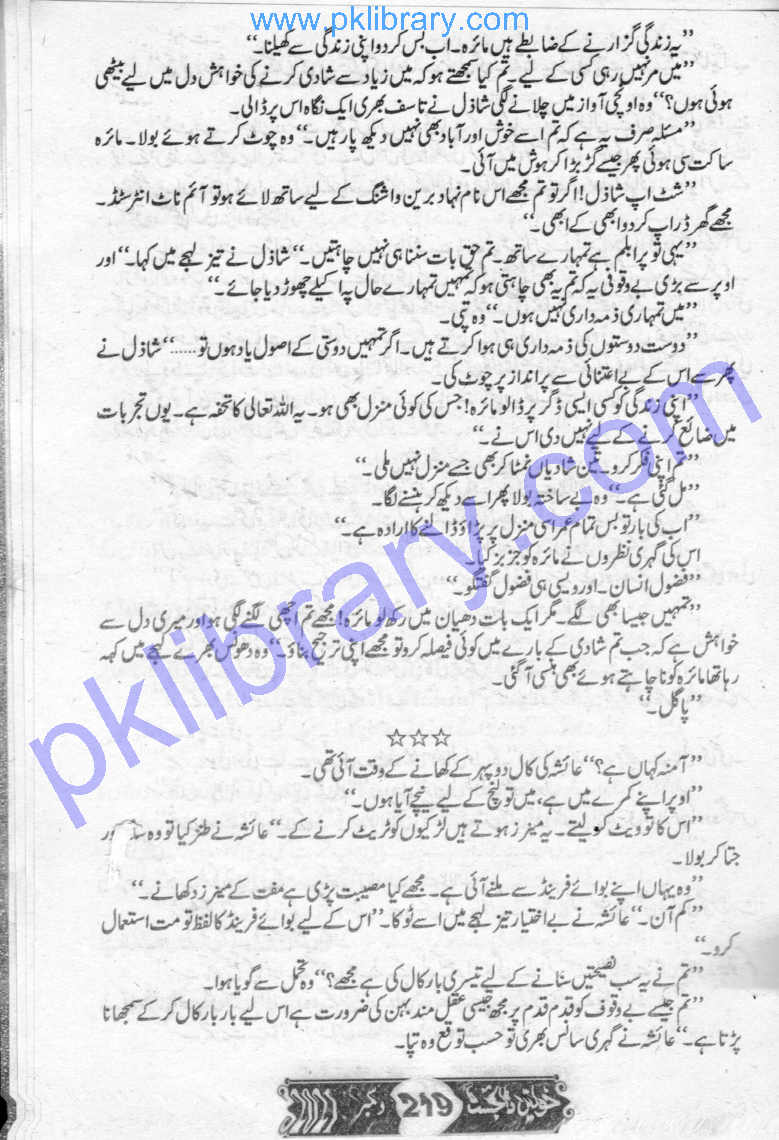 www.pklibrary.com
"یہ زندگی گزارنے کے ضابطے ہیں مائرہ۔ اب بس کردو اپنی زندگی سے کھیلنا۔"
"میں مر نہیں رہی کسی کے لیے۔ تم کیا سمجھتے ہو کہ میں زیاد سے شادی کرنے کی خواہش دل میں لیے بیٹھی
ہوئی ہوں؟" وہ اونچی آواز میں چلانے لگی شاذل نے تاسف بھری ایک نگاہ اس پر ڈالی۔
"مسئلہ صرف یہ ہے کہ تم اسے خوش اور آباد بھی نہیں دیکھ پار ہیں۔" وہ چوٹ کرتے ہوئے بولا۔ مائرہ
ساکت سی ہوئی پھر جیسے گڑبڑا کر ہوش میں آئی۔
"شٹ اپ شاذل! اگر تو تم مجھے اس نام نہاد برین واشنگ کے لیے ساتھ لائے ہو تو آئم ناٹ انٹرسٹڈ۔
مجھے گھر ڈراپ کردو ابھی کے ابھی۔"
"یہی تو پرابلم ہے تمہارے ساتھ۔ تم حق بات سننا ہی نہیں چاہتیں۔" شاذل نے تیز لہجے میں کہا۔ "اور
اوپر سے بڑی بے وقوفی یہ کہ تم یہ بھی چاہتی ہو کہ تمہیں تمہارے حال پہ اکیلے چھوڑ دیا جائے۔"
"میں تمہاری ذمہ داری نہیں ہوں۔" وہ تپی۔
"دوست دوستوں کی ذمہ داری ہی ہوا کرتے ہیں۔ اگر تمہیں دوستی کے اصول یاد ہوں تو......" شاذل نے
پھر سے اس کے بے اعتنائی سے پر انداز پر چوٹ کی۔
"اپنی زندگی کو کسی ایسی ڈگر پر ڈالو مائرہ! جس کی کوئی منزل بھی ہو۔ یہ اللہ تعالی کا تحفہ ہے۔ یوں تجربات
میں ضائع کرنے کے لیے نہیں دی اس نے۔"
"تم اپنی فکر کرو۔ تین شادیاں نمٹا کر بھی جسے منزل نہیں ملی۔"
"مل گئی ہے۔" وہ بے ساختہ بولا پھر اسے دیکھ کر ہنسنے لگا۔
"اب کی بار تو بس تمام عمر اسی منزل پر پڑاؤ ڈالنے کا ارادہ ہے۔"
اس کی گہری نظروں نے مائرہ کو جزبز کیا۔
"فضول انسان۔ اور ویسی ہی فضول گفتگو۔"
"تمہیں جیسا بھی لگے۔ مگر ایک بات دھیان میں رکھ لو مائرہ! مجھے تم اچھی لگنے لگی ہو اور میری دل سے
خواہش ہے کہ جب تم شادی کے بارے میں کوئی فیصلہ کرو تو مجھے اپنی ترجیح بناؤ۔" وہ دھونس بھرے لہجے میں کہہ
رہا تھا مائرہ کو نا چاہتے ہوئے بھی ہنسی آ گئی۔
"پاگل۔"
☆☆☆
"آمنہ کہاں ہے؟" عائشہ کی کال دوپہر کے کھانے کے وقت آئی تھی۔
"اوپر اپنے کمرے میں ہے، میں تو لنچ کے لیے نیچے آیا ہوں۔"
"اس کا تو ویٹ کو لیتے۔ یہ مینرز ہوتے ہیں لڑکیوں کو ٹریٹ کرنے کے۔" عائشہ نے طنز کیا تو وہ
جتا کر بولا۔
"وہ یہاں اپنے بوائے فرینڈ سے ملنے آئی ہے۔ مجھے کیا مصیبت پڑی ہے مفت کے مینرز دکھانے۔"
"کم آن۔" عائشہ نے بے اختیار تیز لہجے میں اسے ٹوکا۔ "اس کے لیے بوائے فرینڈ کا لفظ تو مت استعمال
کرو۔"
"تم نے یہ سب نصیحتیں سنانے کے لیے تیسری بار کال کی ہے مجھے؟" وہ تحمل سے گویا ہوا۔
"تم جیسے بے وقوف کو قدم قدم پر مجھ جیسی عقل مند بہن کی ضرورت ہے اس لیے بار بار کال کر کے سمجھانا
پڑتا ہے۔" عائشہ نے گہری سانس بھری تو حسب توقع وہ تپا۔
خواتین ڈائجسٹ 219 دسمبر
pklibrary.com